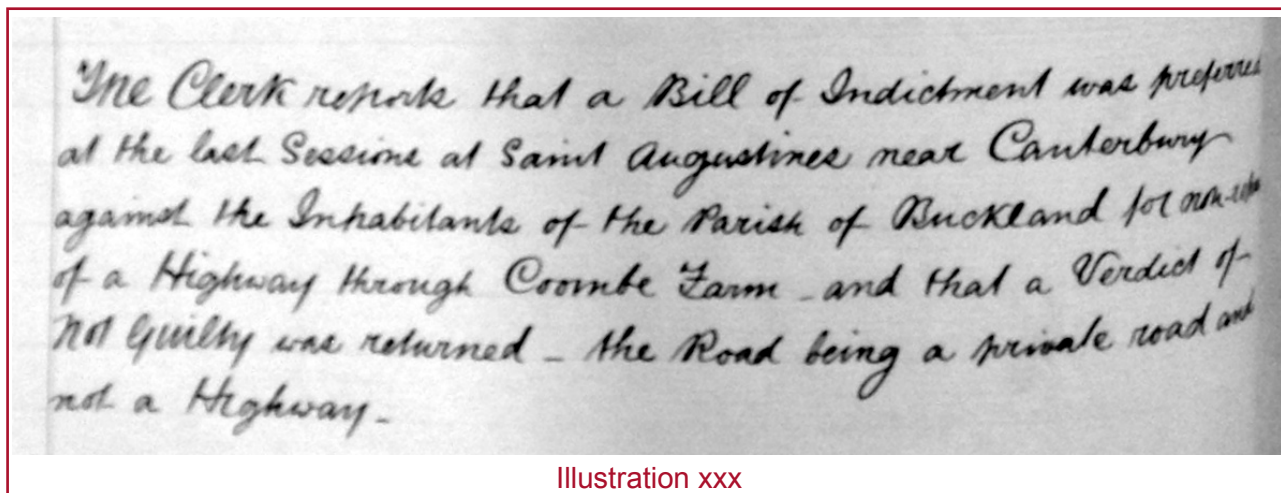 The Clerk reports that a Bill of Indictment was preferred
at the last Sessions at Saint Augustines near Canterbury
against the Inhabitants of the Parish of Buckland for
of a Highway through Coombe Farm - and that a Verdict of
Not Guilty was returned - the Road being a private road and
not a Highway -
Illustration xxx